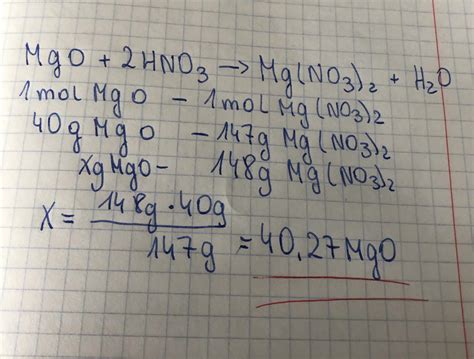 MgO + 2HNO₃ → Mg(NO₃)₂ + H₂O
1 mol MgO - 1 mol Mg(NO₃)₂
40g MgO - 147g Mg(NO₃)₂
XgMgO- 148g Mg(NO₃)₂
X = 148g·40g / 147g = 40,27MgO